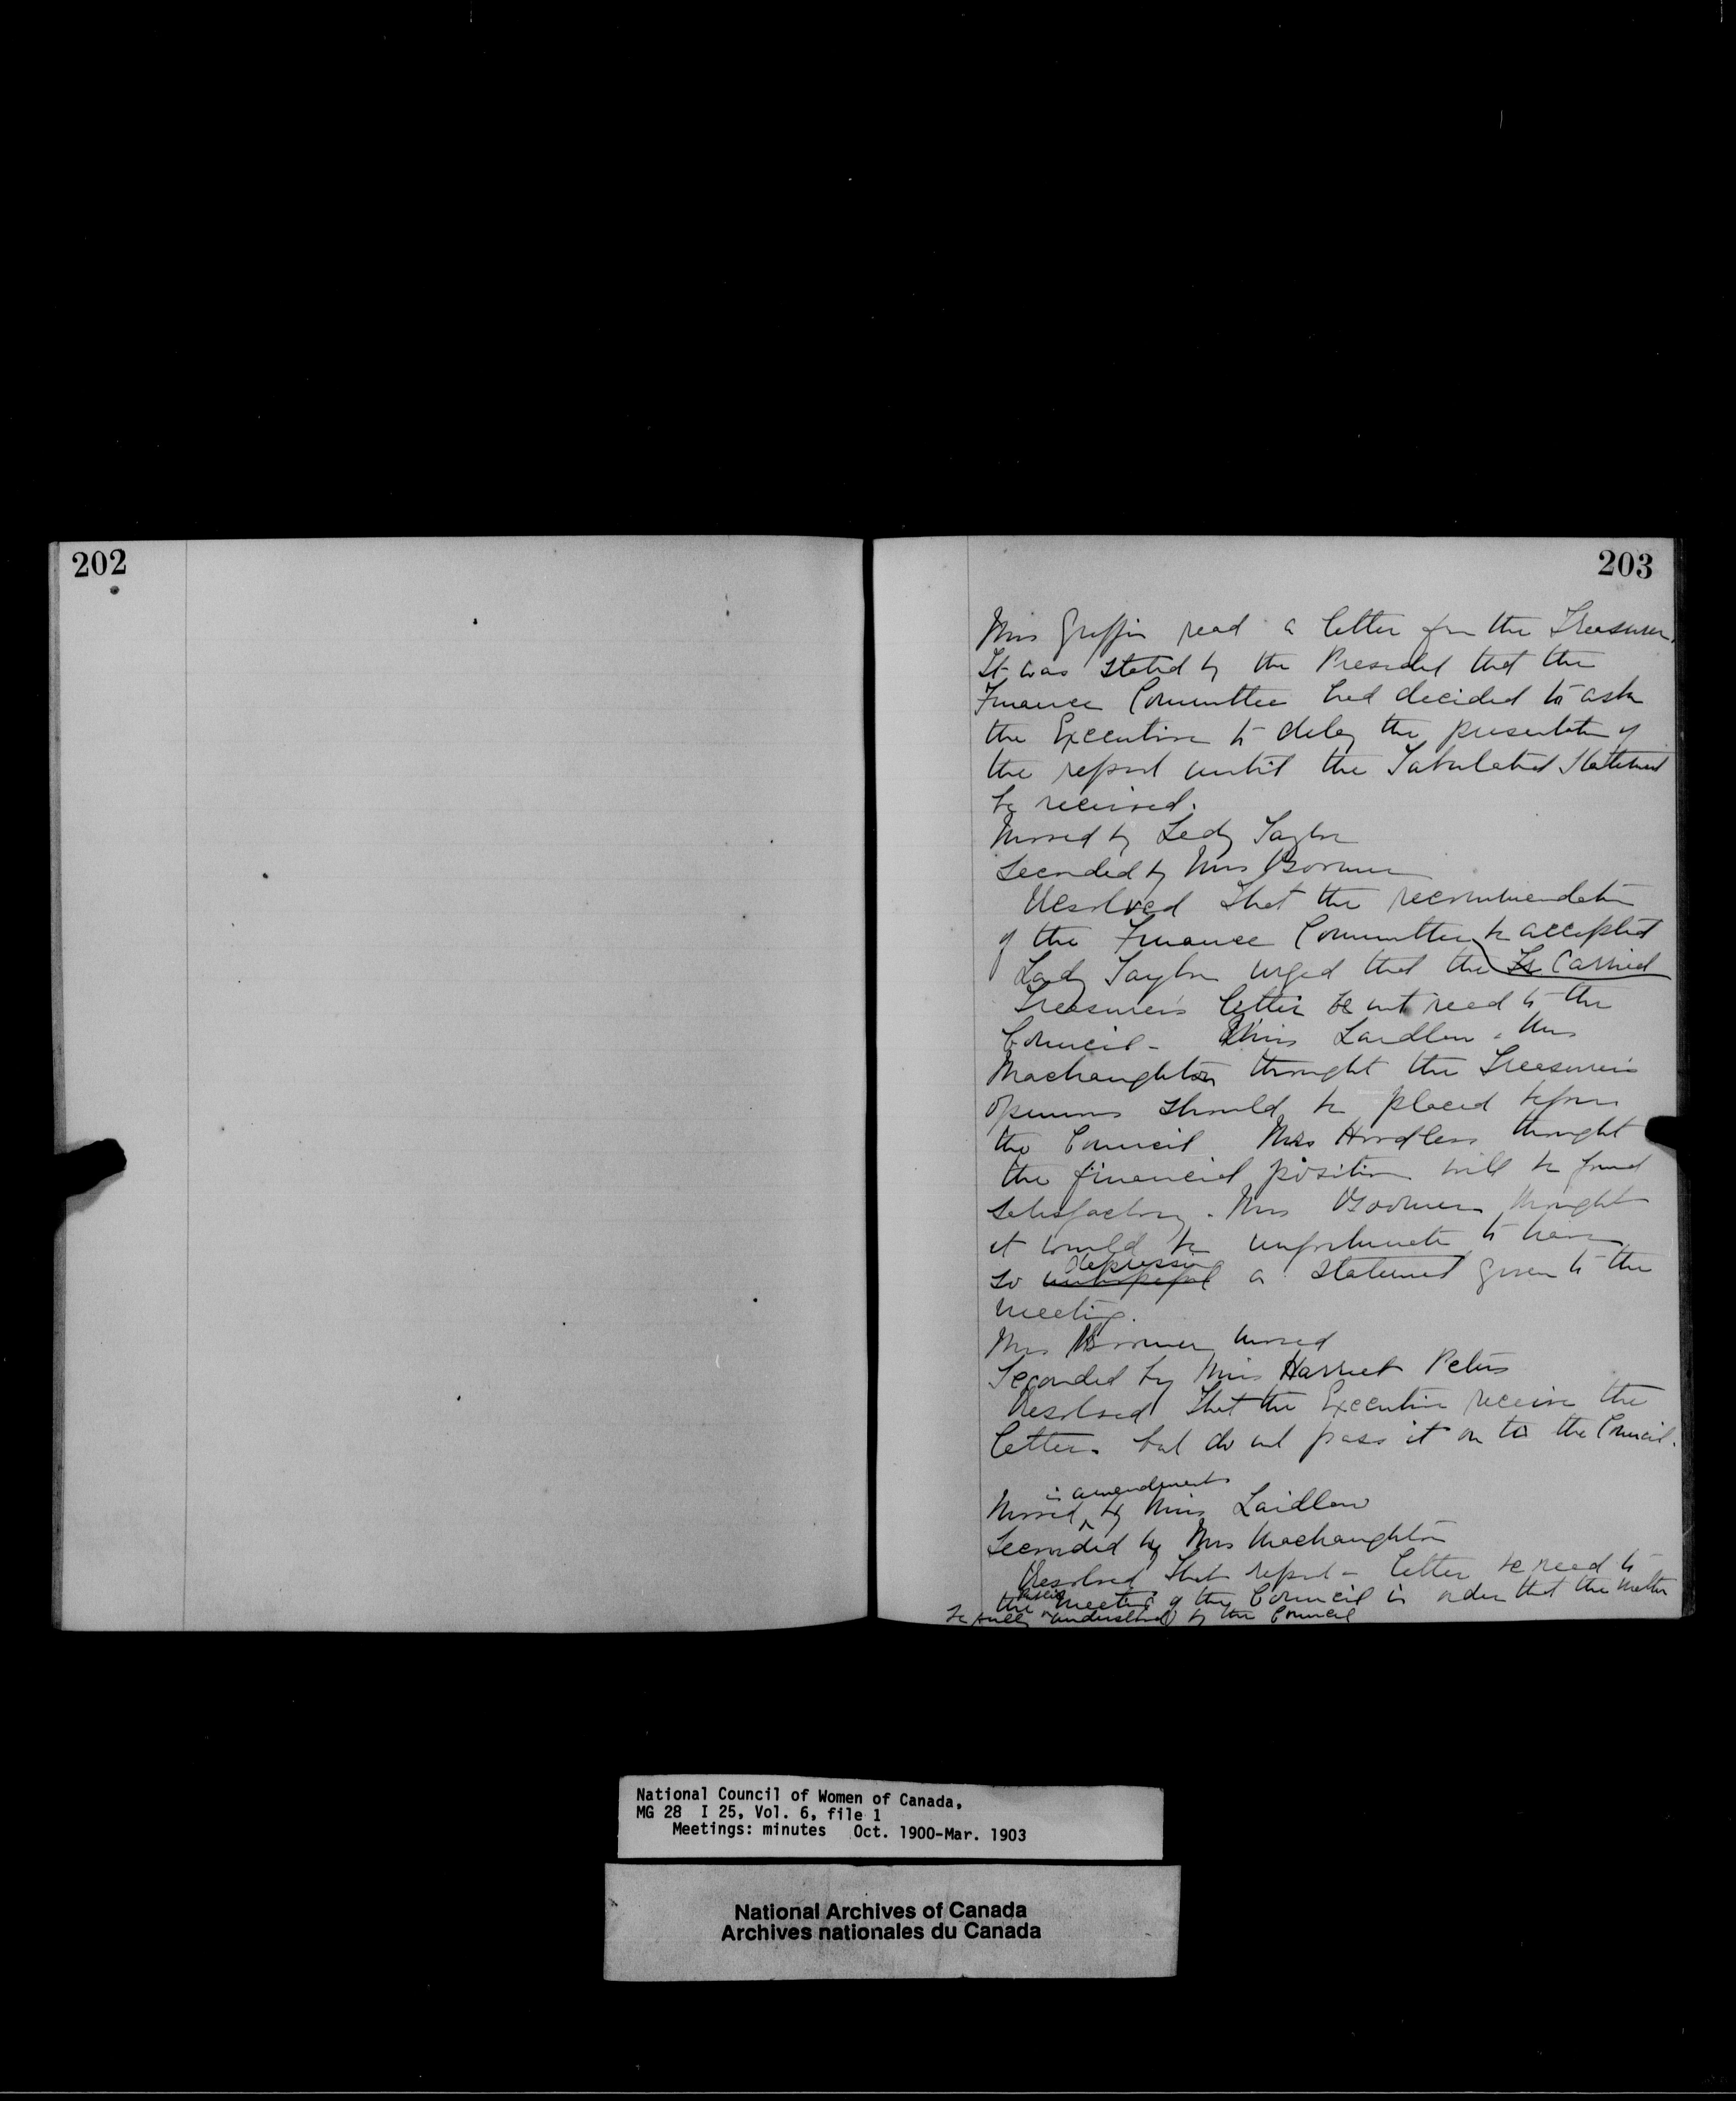 202
203
Mrs Griffin read a letter from the Treasurer.
It was stated by the President that the
Finance Committee had decided to ask
the Executive to delay the presentation of
the report until the Tabulated Statement
be received.
Moved by Lady Taylor
Seconded by Mrs Boomer
Resolved That the recommendation
of the Finance Committee be accepted
Carried
Lady Taylor urged that the
Treasurer's letter be not read to the
Council - Miss Laidlaw & Mrs
Macnaughton thought the Treasurer's
opinions should be placed before
the Council Mrs Hoodless thought
the financial position will be found
satisfactory. Mrs Boomer thought
it would be unfortunate to have
so unhopeful depressing a statement given to the
meeting.
Mrs Boomer moved
Seconded by Miss Harriet Peters
Resolved That the Executive receive the
letter but do not pass it on to the Council.
Moved in amendment by Miss Laidlaw
Seconded by Mrs Macnaughton
Resolved that report & letter be read to
the meeting of the Council in order that the matter
be fully understood by the Council
National Council of Women of Canada,
MG 28 I 25, Vol. 6, file 1
Meetings: minutes Oct. 1900-Mar. 1903
National Archives of Canada
Archives nationales du Canada